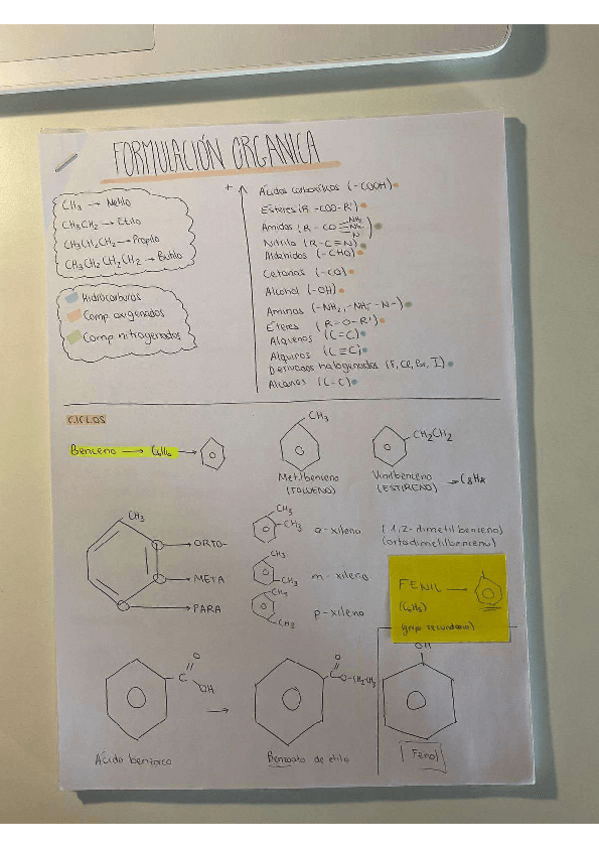 FORMULACIÓN ORGANICA
CH₃ → Metilo
CH₃CH₂ → Etilo
CH₃CH₂CH₂ → Propilo
CH₃CH₂CH₂CH₂ → Butilo
Hidrocarburos
Comp. oxigenados
Comp. nitrogenados
+
Ácidos carboxílicos (-COOH)
Esteres (R-COO-R')
Amidas (R-CO
Nitrilo (R-C≡N)
Aldehidos (-CHO)
Cetonas (-CO)
Alcohol (-OH)
Aminas (-NH₂, -NH-, -N-)
Éteres (R-O-R')
Alquenos (C=C)
Alquinos (C≡C)
Derivados halogenados (F, Cl, Br, I)
Alcanos (C-C)
CICLOS
Benceno → C₆H₆ →
CH₃
Metilbenceno
(TOLUENO)
CH₂CH₂
Vinilbenceno
(ESTIRENO)
CH₃
ORTO-
META
PARA
CH₃
CH₃
o-xileno
(1,2-dimetilbenceno)
(ortodimetilbenceno)
CH₃
CH₃
m-xileno
CH₃
CH₃
p-xileno
FENIL →
(C₆H₅)
grupo secundario)
O
C
OH
Ácido benzoico
→
O
C
O-CH₂CH₃
Benzoato de etilo
OH
Fenol